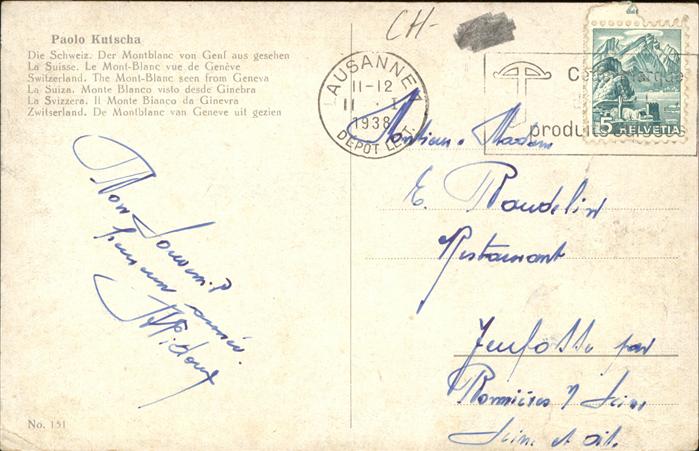 Paolo Kutscha
Die Schweiz. Der Montblanc von Genf aus gesehen
La Suisse. Le Mont-Blanc vue de Genève
Switzerland. The Mont-Blanc seen from Geneva
La Suiza. Monte Blanco visto desde Ginebra
La Svizzera. Il Monte Bianco da Ginevra
Zwitserland. De Montblanc van Geneve uit gezien
CH-
LAUSANNE
11-12
1938
DEPOT LET.
produits
5 HELVETIA
Bon Souvenir
Monsieur Madame
E. Baudelin
Restaurant
Jeufosse par
Bonnières s/ Seine
Seine et Oise
No. 151